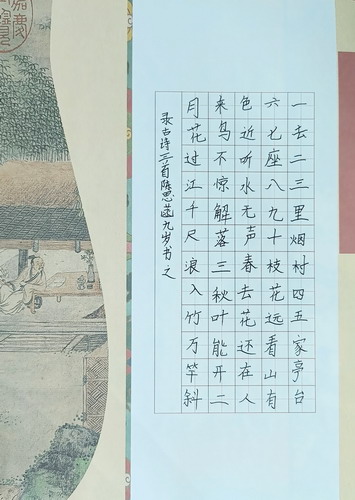 一去二三里烟村四五家亭台
六七座八九十枝花远看山有
色近听水无声春去花还在人
来鸟不惊解落三秋叶能开二
月花过江千尺浪入竹万竿斜
录古诗三首陈思菡九岁书之